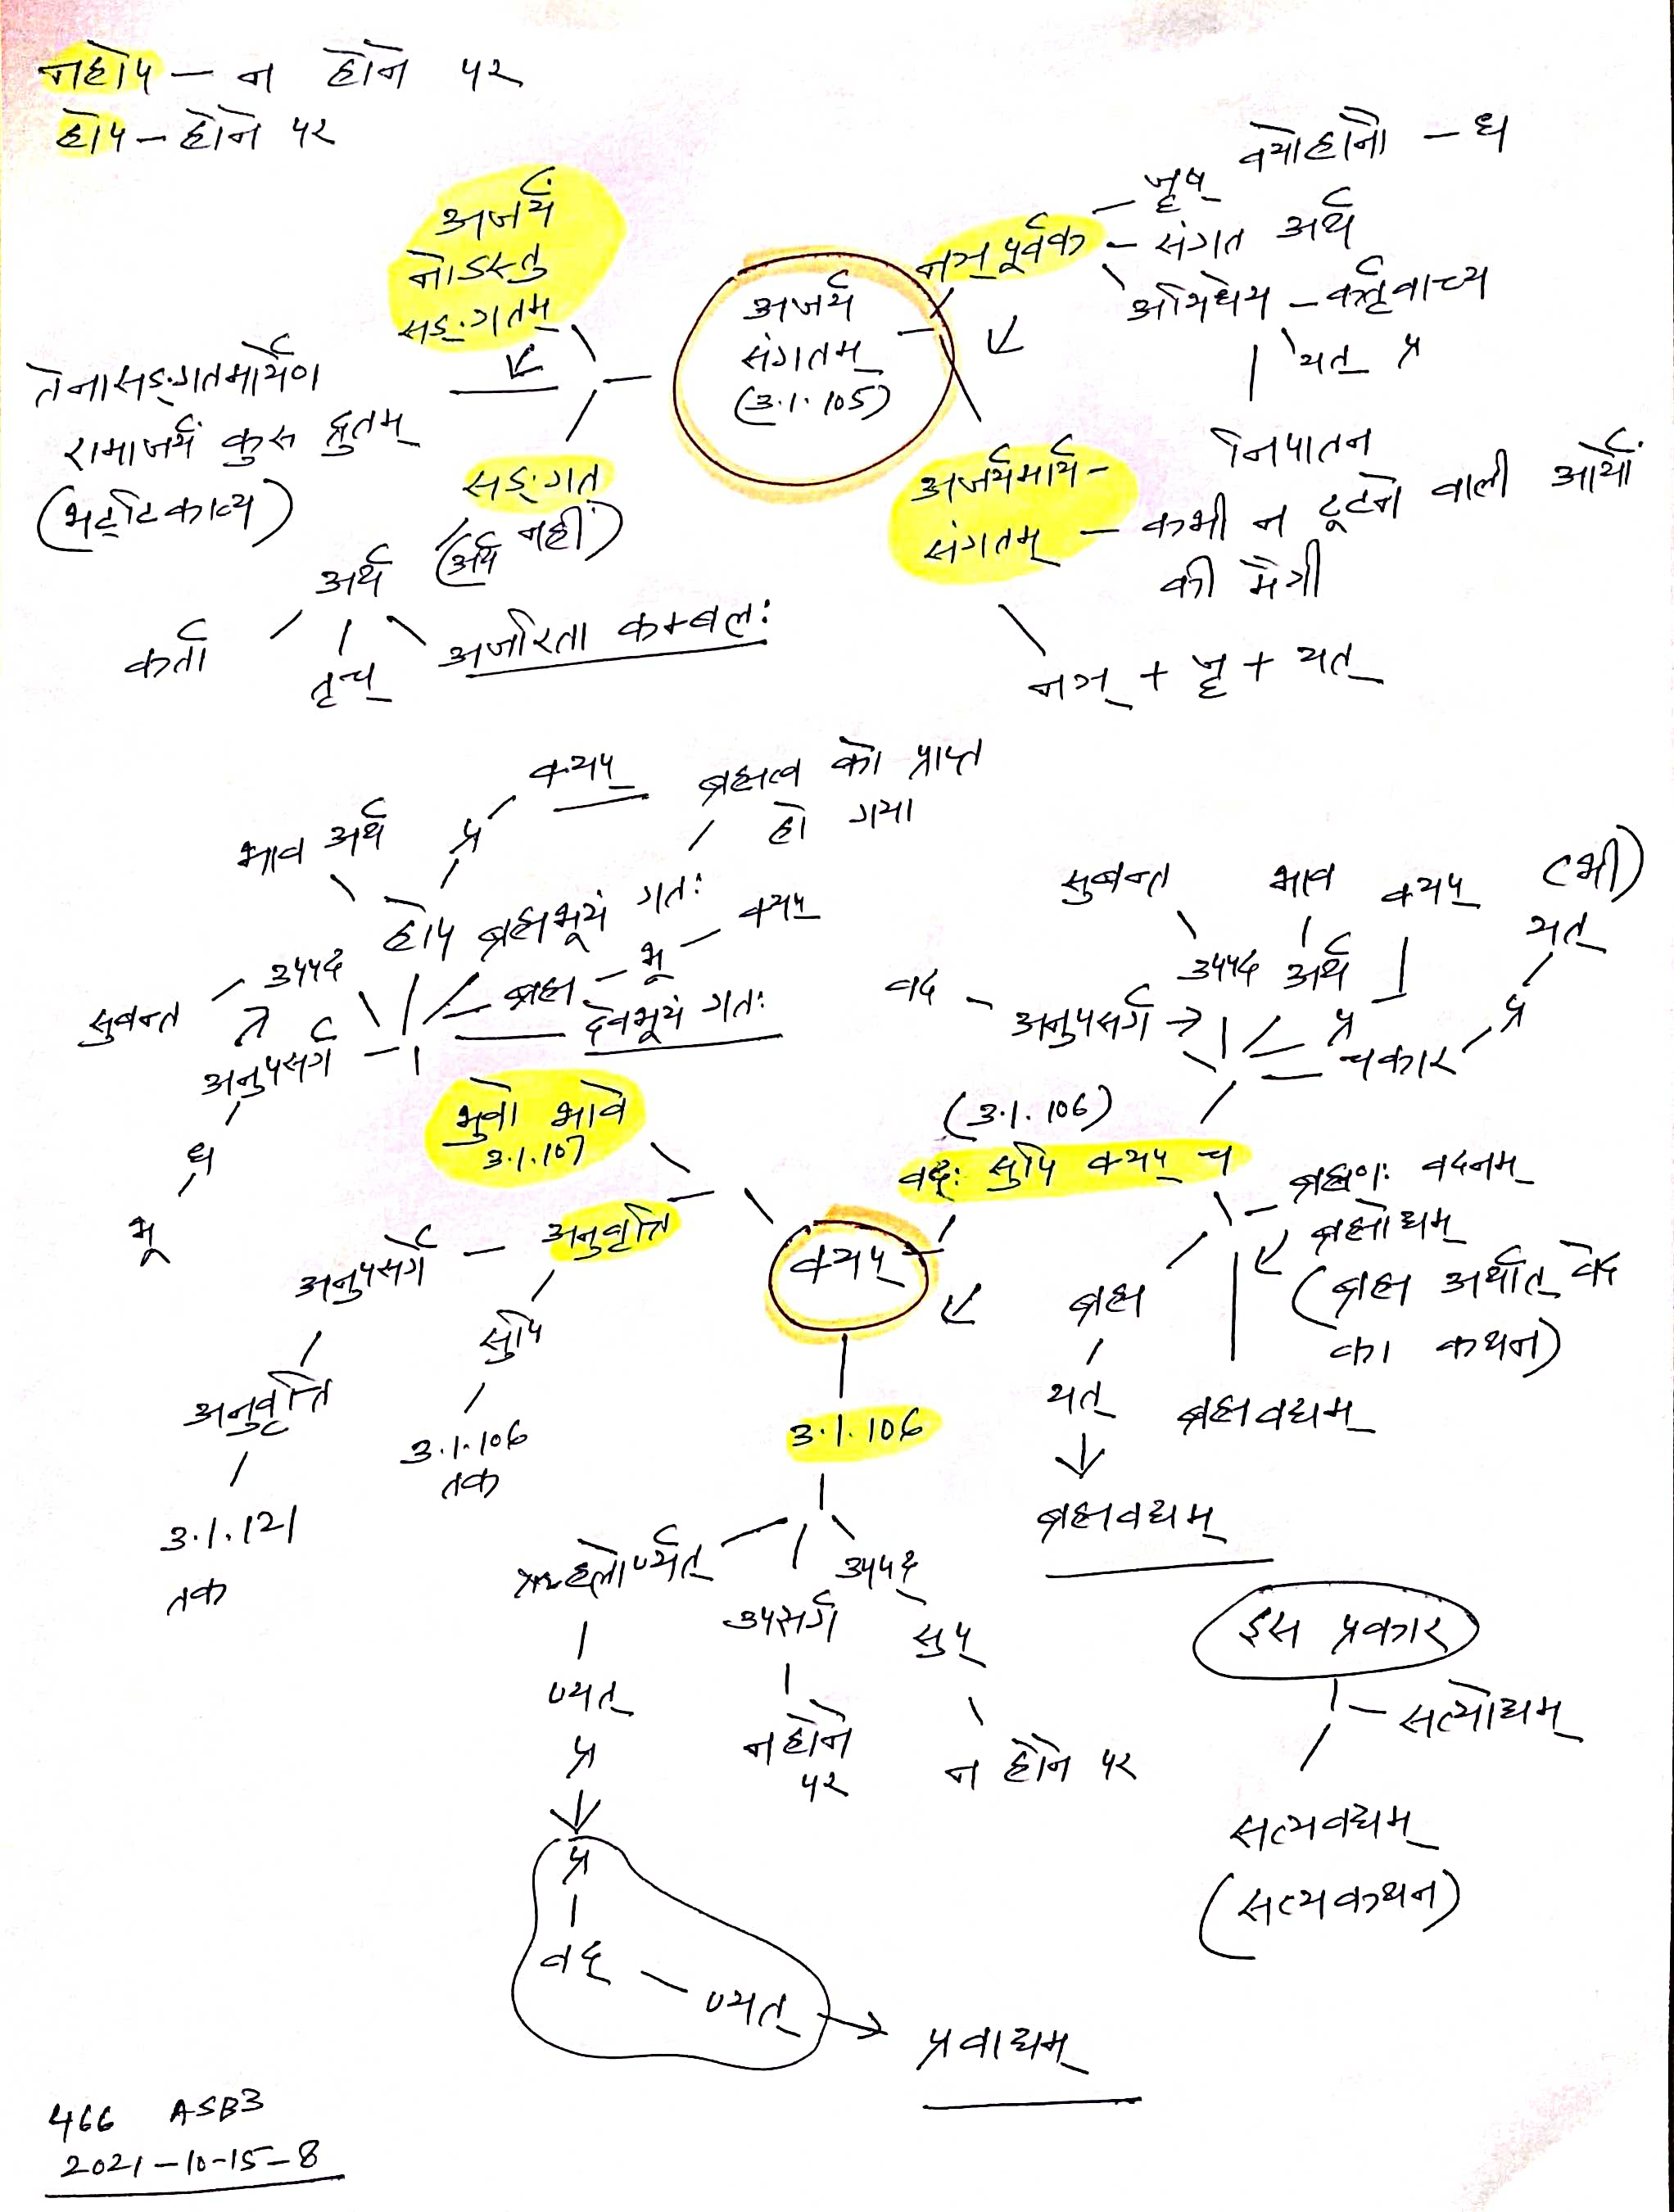 नहोप – न होने पर
होप – होने पर
अजर्यं
नोऽस्तु
सङ्गतम्
तेनासङ्गतमार्येण
रामाजर्यं कुरु द्रुतम्
(भट्टिकाव्य)
सङ्गत
(अर्थ नहीं)
अर्थ
कर्ता
तृच्
अजरिता कम्बल:
अजर्यं
संगतम्
(3.1.105)
नञ् पूर्वक
जॄष् वयोहानौ – ध
संगत अर्थ
अभिधेय – कर्तृवाच्य
यत् प्र
निपातन
अजर्यमार्य-
संगतम् – कभी न टूटने वाली आर्यों
की मैत्री
नञ् + जॄ + यत्
भाव अर्थ
प्र
क्यप्
ब्रह्मत्व को प्राप्त
हो गया
होप
ब्रह्मभूयं गत:
ब्रह्म – भू – क्यप्
देवभूयं गत:
सुबन्त
उपपद
अनुपसर्ग
ध
भू
भुवो भावे
3.1.107
अनुवृत्ति
अनुपसर्ग
अनुवृत्ति
3.1.121
तक
सुपि
3.1.106
तक
सुबन्त
भाव
क्यप्
(भी)
यत्
उपपद
अर्थ
प्र
प्र
वद
अनुपसर्ग
चकार
(3.1.106)
वद: सुपि क्यप् च
ब्रह्मण: वदनम्
ब्रह्मोद्यम्
(ब्रह्म अर्थात् वेद
का कथन)
ब्रह्म
यत्
ब्रह्मवद्यम्
ब्रह्मवद्यम्
क्यप्
3.1.106
ऋहलोर्ण्यत्
ण्यत्
प्र
उपसर्ग
न होने
पर
उपपद
सुप्
न होने पर
प्र
वद्
ण्यत्
प्रवाद्यम्
इस प्रकार
सत्योद्यम्
सत्यवद्यम्
(सत्यकथन)
466 ASB3
2021-10-15-8